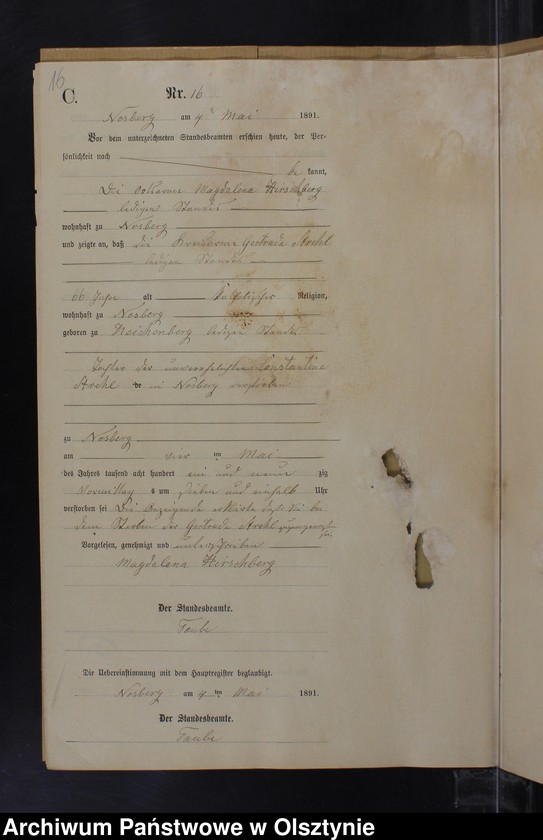 16
C.
Nr. 16
Nosberg am 4 Mai 1891.
Vor dem unterzeichneten Standesbeamten erschien heute, der Per-
sönlichkeit nach
be kannt,
Die Magdalena Hirschberg
ledigen Standes
wohnhaft zu Nosberg
und zeigte an, daß die Gertruda Archl
ledigen Standes
66 Jahre alt Religion,
wohnhaft zu Nosberg
geboren zu Reichenberg ledigen Standes
Tochter der unverehelichten Constantine
Archl in Nosberg verstorben
zu Nosberg
am vier ten Mai
des Jahres tausend acht hundert ein und neun zig
Vormittag s um sieben und einhalb Uhr
verstorben sei Die Anzeigende erklärte daß sie bei
dem Sterben der Gertruda Archl zugegen gewesen
sei
Vorgelesen, genehmigt und unterschrieben
Magdalena Hirschberg
Der Standesbeamte.
Taube
Die Uebereinstimmung mit dem Hauptregister beglaubigt.
Nosberg am 4 ten Mai 1891.
Der Standesbeamte.
Taube
Archiwum Państwowe w Olsztynie